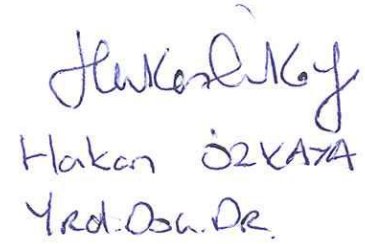 Hakan ÖZKAYA
Yrd.Doç.DR.